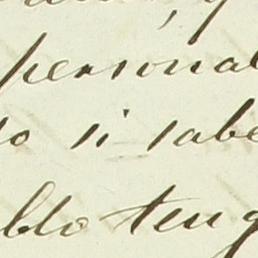 personal
to si sabe
blo teng